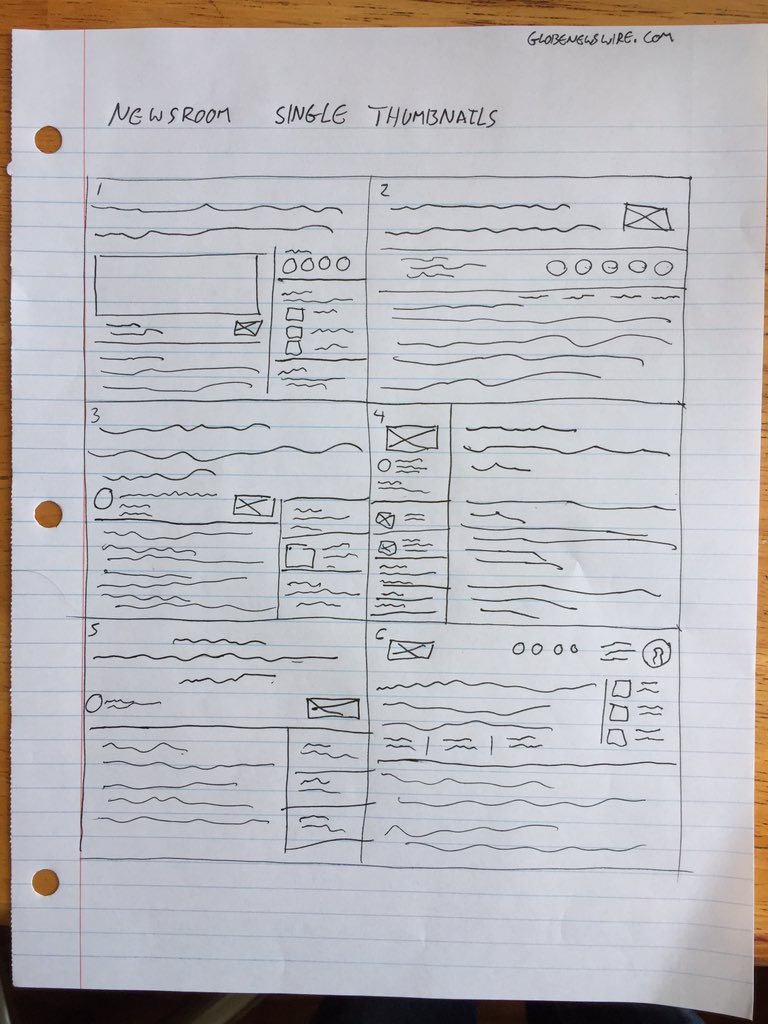 GLOBENEWSWIRE.COM
NEWSROOM SINGLE THUMBNAILS
1
2
3
4
5
6